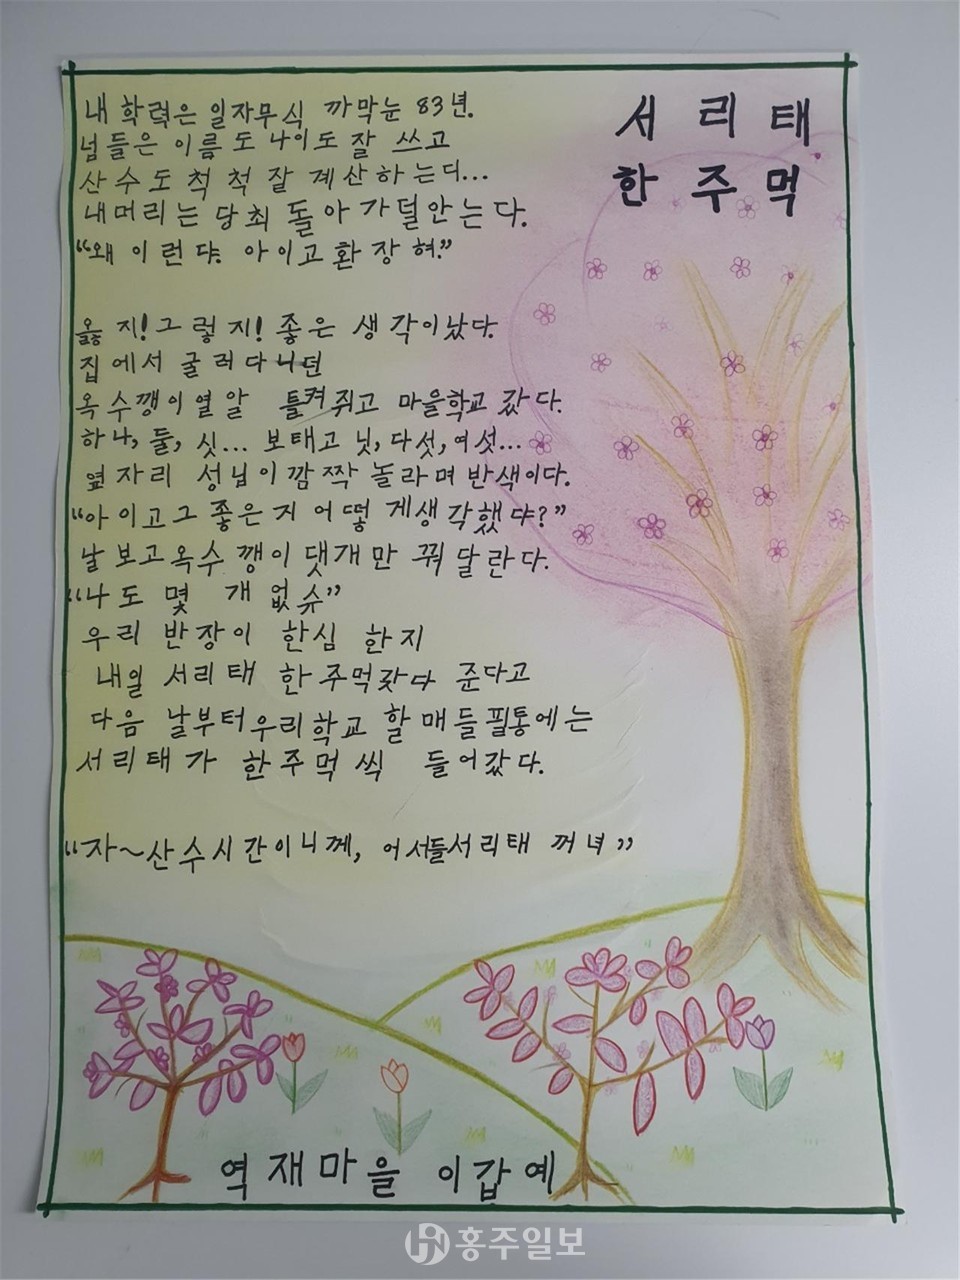 서리태
한주먹
내 학력은 일자무식 까막눈 83년.
넘들은 이름도 나이도 잘 쓰고
산수도 척척 잘 계산하는디...
내머리는 당최 돌아가덜안는다.
“왜 이런댜. 아이고 환장혀.”
옳지! 그렇지! 좋은 생각이났다.
집에서 굴러다니던
옥수깽이열알 틀켜쥐고 마을학교 갔다.
하나, 둘, 싯... 보태고 닛, 다섯, 여섯...
옆자리 성님이 깜짝 놀라며 반색이다.
“아이고그 좋은지 어떻게생각했댜?”
날보고옥수깽이 댓개만 꿔달란다.
“나도 몇 개 없슈”
우리 반장이 한심한지
내일 서리태 한주먹갖다 준다고
다음 날부터우리학교 할매들필통에는
서리태가 한주먹씩 들어갔다.
“자~산수시간이니께, 어서들서리태 꺼녀”
역재마을 이갑예
홍주일보